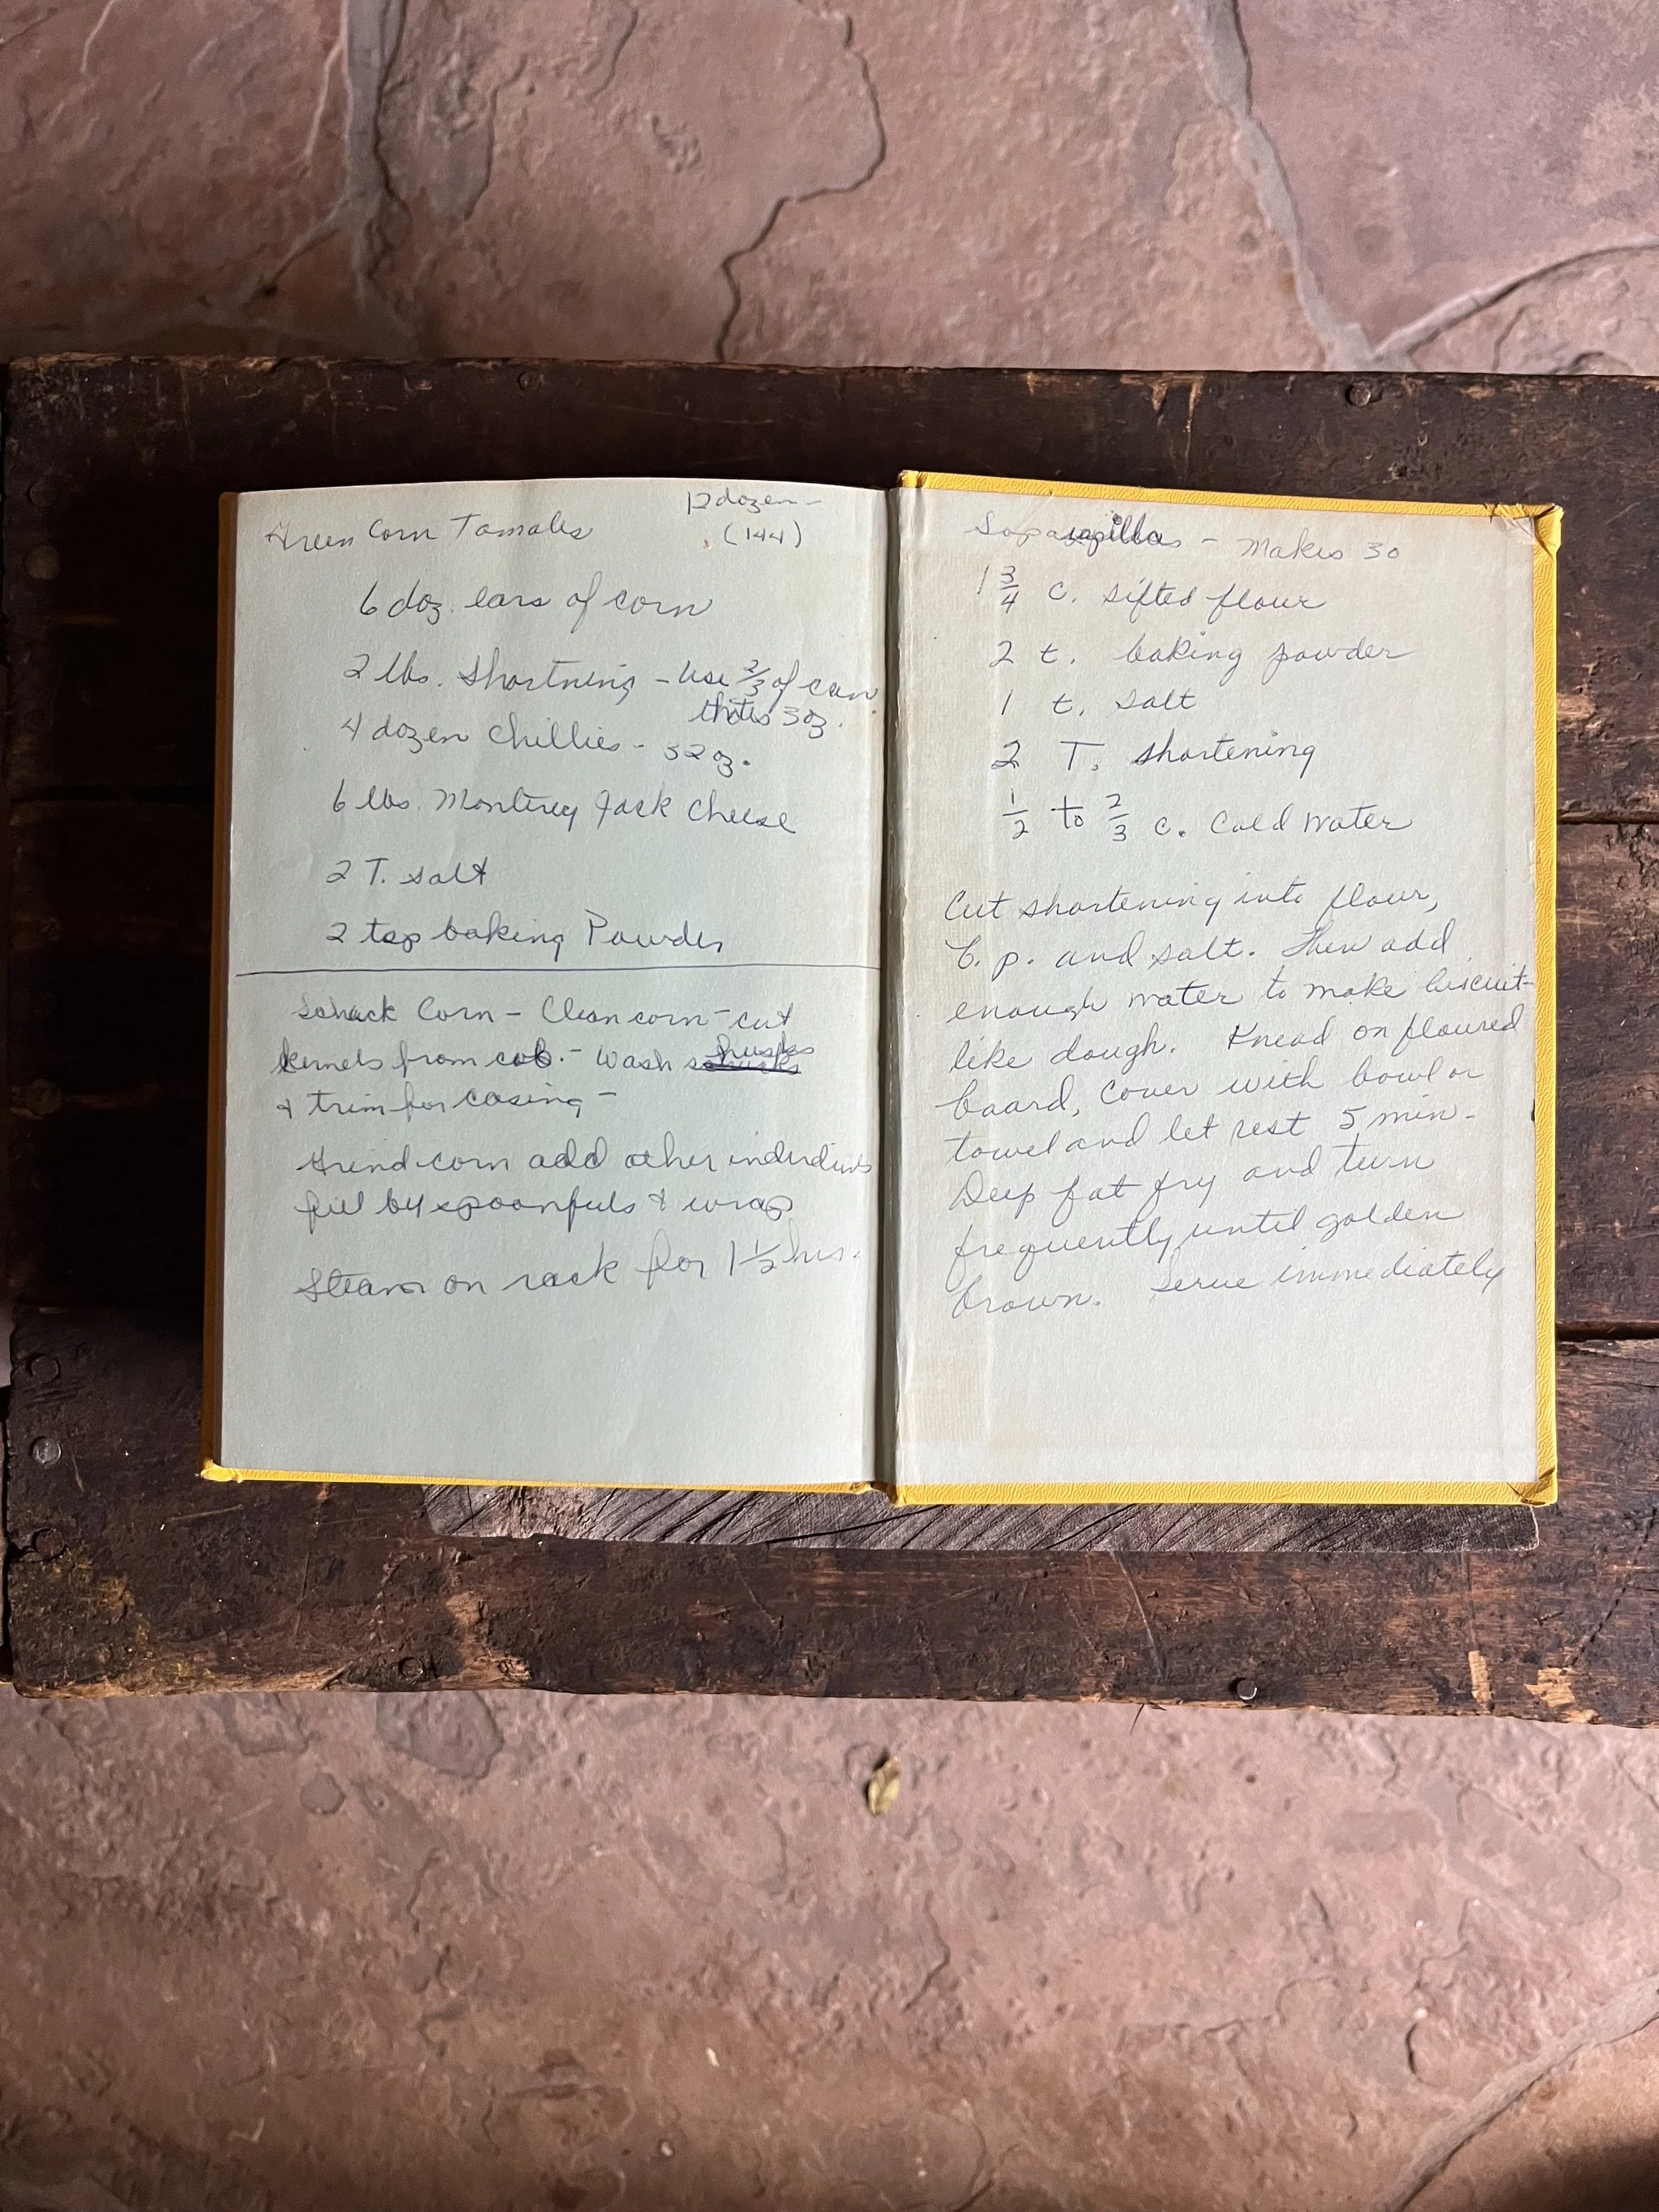 Green Corn Tamales
12 dozen -
(144)
6 doz. ears of corn
2 lbs. Shortning - use 2/3 of can
thats 3 oz.
4 dozen Chillies - 32 oz.
6 lbs. Monterey Jack Cheese
2 T. salt
2 tsp baking Powder
Schuck Corn - Clean corn - cut
kernels from cob. - Wash husks
& trim for casing -
Grind corn add other
fill by spoonfuls & wrap
Steam on rack for 1 1/2 hrs.
- Makes 30
1 3/4 c. sifted flour
2 t. baking powder
1 t. salt
2 T. shortening
1/2 to 2/3 c. Cold water
Cut shortening into flour,
b. p. and salt. Then add
enough water to make biscuit-
like dough. Knead on floured
board, cover with bowl or
towel and let rest 5 min.
Deep fat fry and turn
frequently until golden
brown. Serve immediately